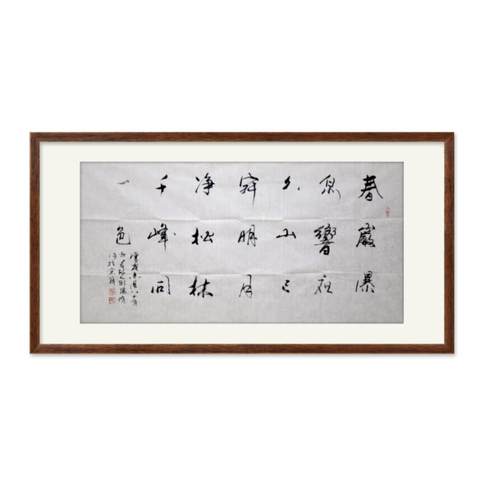 春巖瀑
泉響夜
久山已
寂明月
净松林
千峰同
一色